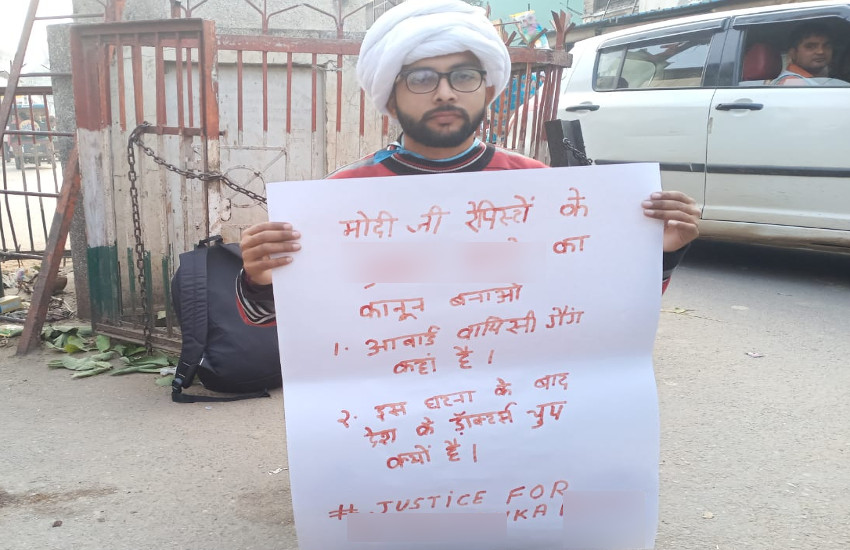 मोदी जी रेपिस्टों के
का
कानून बनाओ
1. आवार्ड वापिसी गैंग
कहां है।
२. इस घटना के बाद
देश के डॉक्टर्स चुप
क्यों है।
# JUSTICE FOR